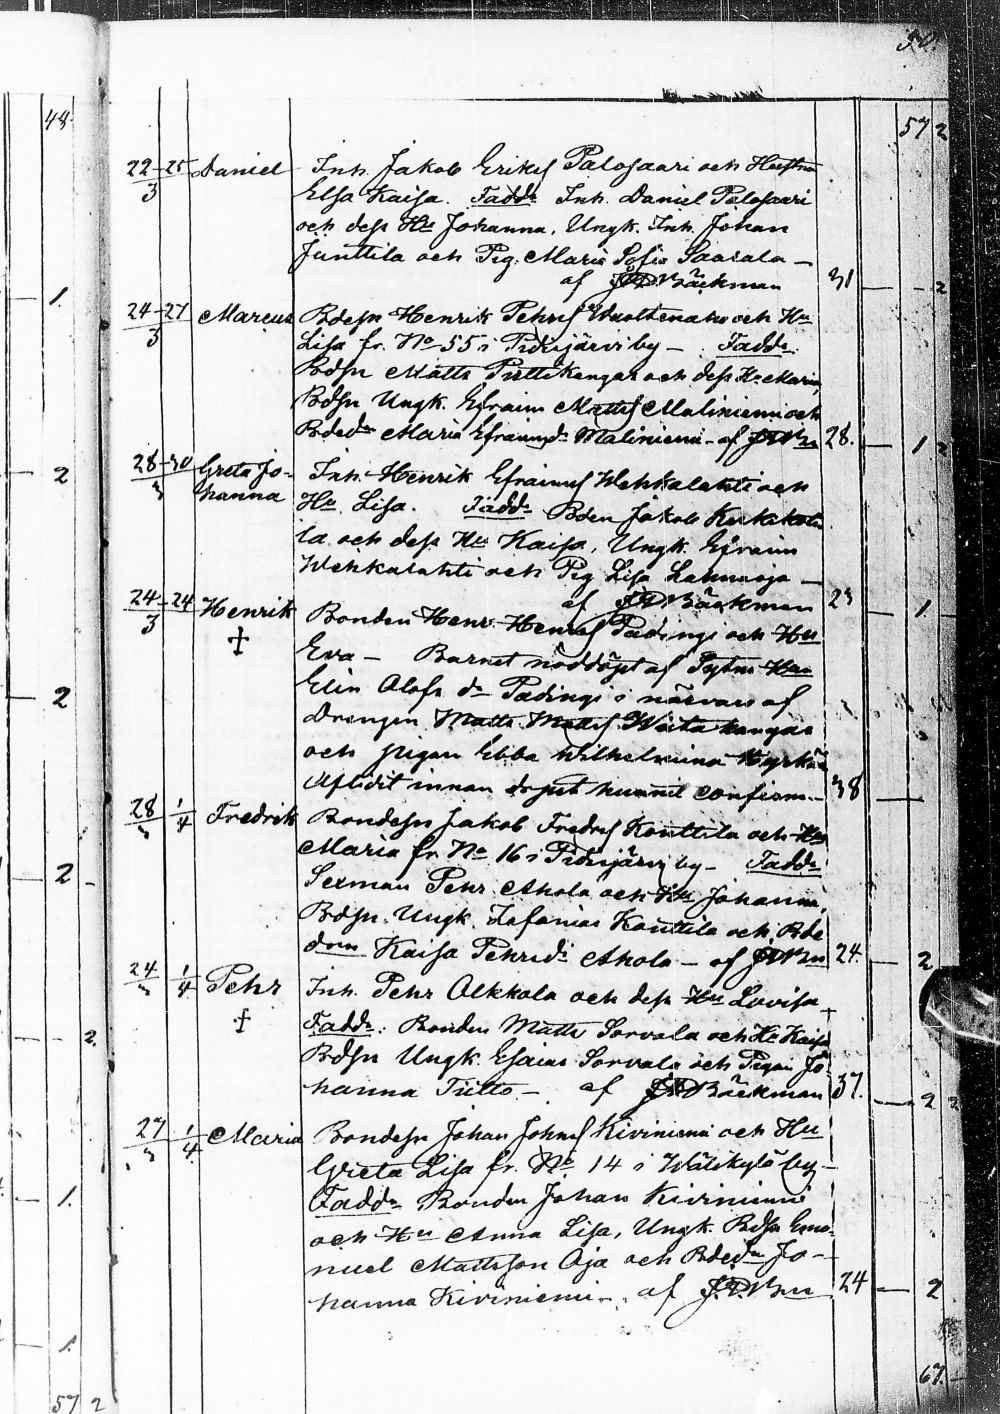 50.
48.
57 2
22-25 Daniel Inh. Jakob Eriksſ Paloſaari och Huſtru
3 Elſa Kaiſa. Fadd: Inh. Daniel Paloſaari
och deſs Hu Johanna, Ungk. Inh. Johan
Junttila och Pig. Maria Sofia Saarala —
af JDBäckman 31 — 2
1.
24-27 Marcus Bdeſn Henrik Pehrsſ och Hu
3 Liſa fr. No 55 i Pidisjärvi by — Fadd:
Bdſn Matts Puttikangas och deſs Hu Maria,
Bdſn Ungk. Efraim Mattsſ Maliniemi och
Bdedr Maria Efraimsdr Maliniemi — af JDBn 28. — 1 2
28-30 Greta Jo- Inh. Henrik Efraimsſ Wehkalahti och
3 hanna Hu Liſa. Fadd: Bden Jakob
la och deſs Hu Kaiſa, Ungk. Efraim
Wehkalahti och Pig Liſa Lahnaoja —
af JDBäckman 23 — 1
2
24-24 Henrik Bonden Henr. Henrsſ Padingi och Hu
3 † Eva — Barnet nöddöpt af Hu
Elin Alofs dr Padingi i närvaro af
Drengen Matts Mattsſ Wiitakangas
och pigan Ebba Wilhelmina
Aflidit innan dopet hunnit confirm. — 38 —
2
28 1 Fredrik Bondeſn Jakob Fredrsſ Konttila och Hu
3 4 Maria fr No 16 i Pidisjärvi by — Fadd:
Sexman Pehr Ahola och Hu Johanna,
Bdſn. Ungk. Zefanias Konttila och Bde
dom Kaiſa Pehrsdr Ahola — af JDBn 24. — 2
2 -
24 1 Pehr Inh. Pehr Olkkola och deſs Hu Loviſa —
3 4 † Fadd: Bonden Matts Sorvala och Hu Kaiſa
Bdſn Ungk. Eſaias Sorvala och Pigan Jo-
hanna Tiitto — af JDBäckman 37. — 2 2
2.
27 1 Maria Bondeſn Johan Johnsſ Kiviniemi och Hu
3 4 Greta Liſa fr. No 14 i Wälikylä by —
Fadd: Bonden Johan Kiviniemi
och Hu Anna Liſa, Ungk. Bdſn Ema-
nuel Mattsſon Oja och Bdedr Jo-
hanna Kiviniemi —. af J.D.Bn 24 — 2
1.
1.
67. —
57 2